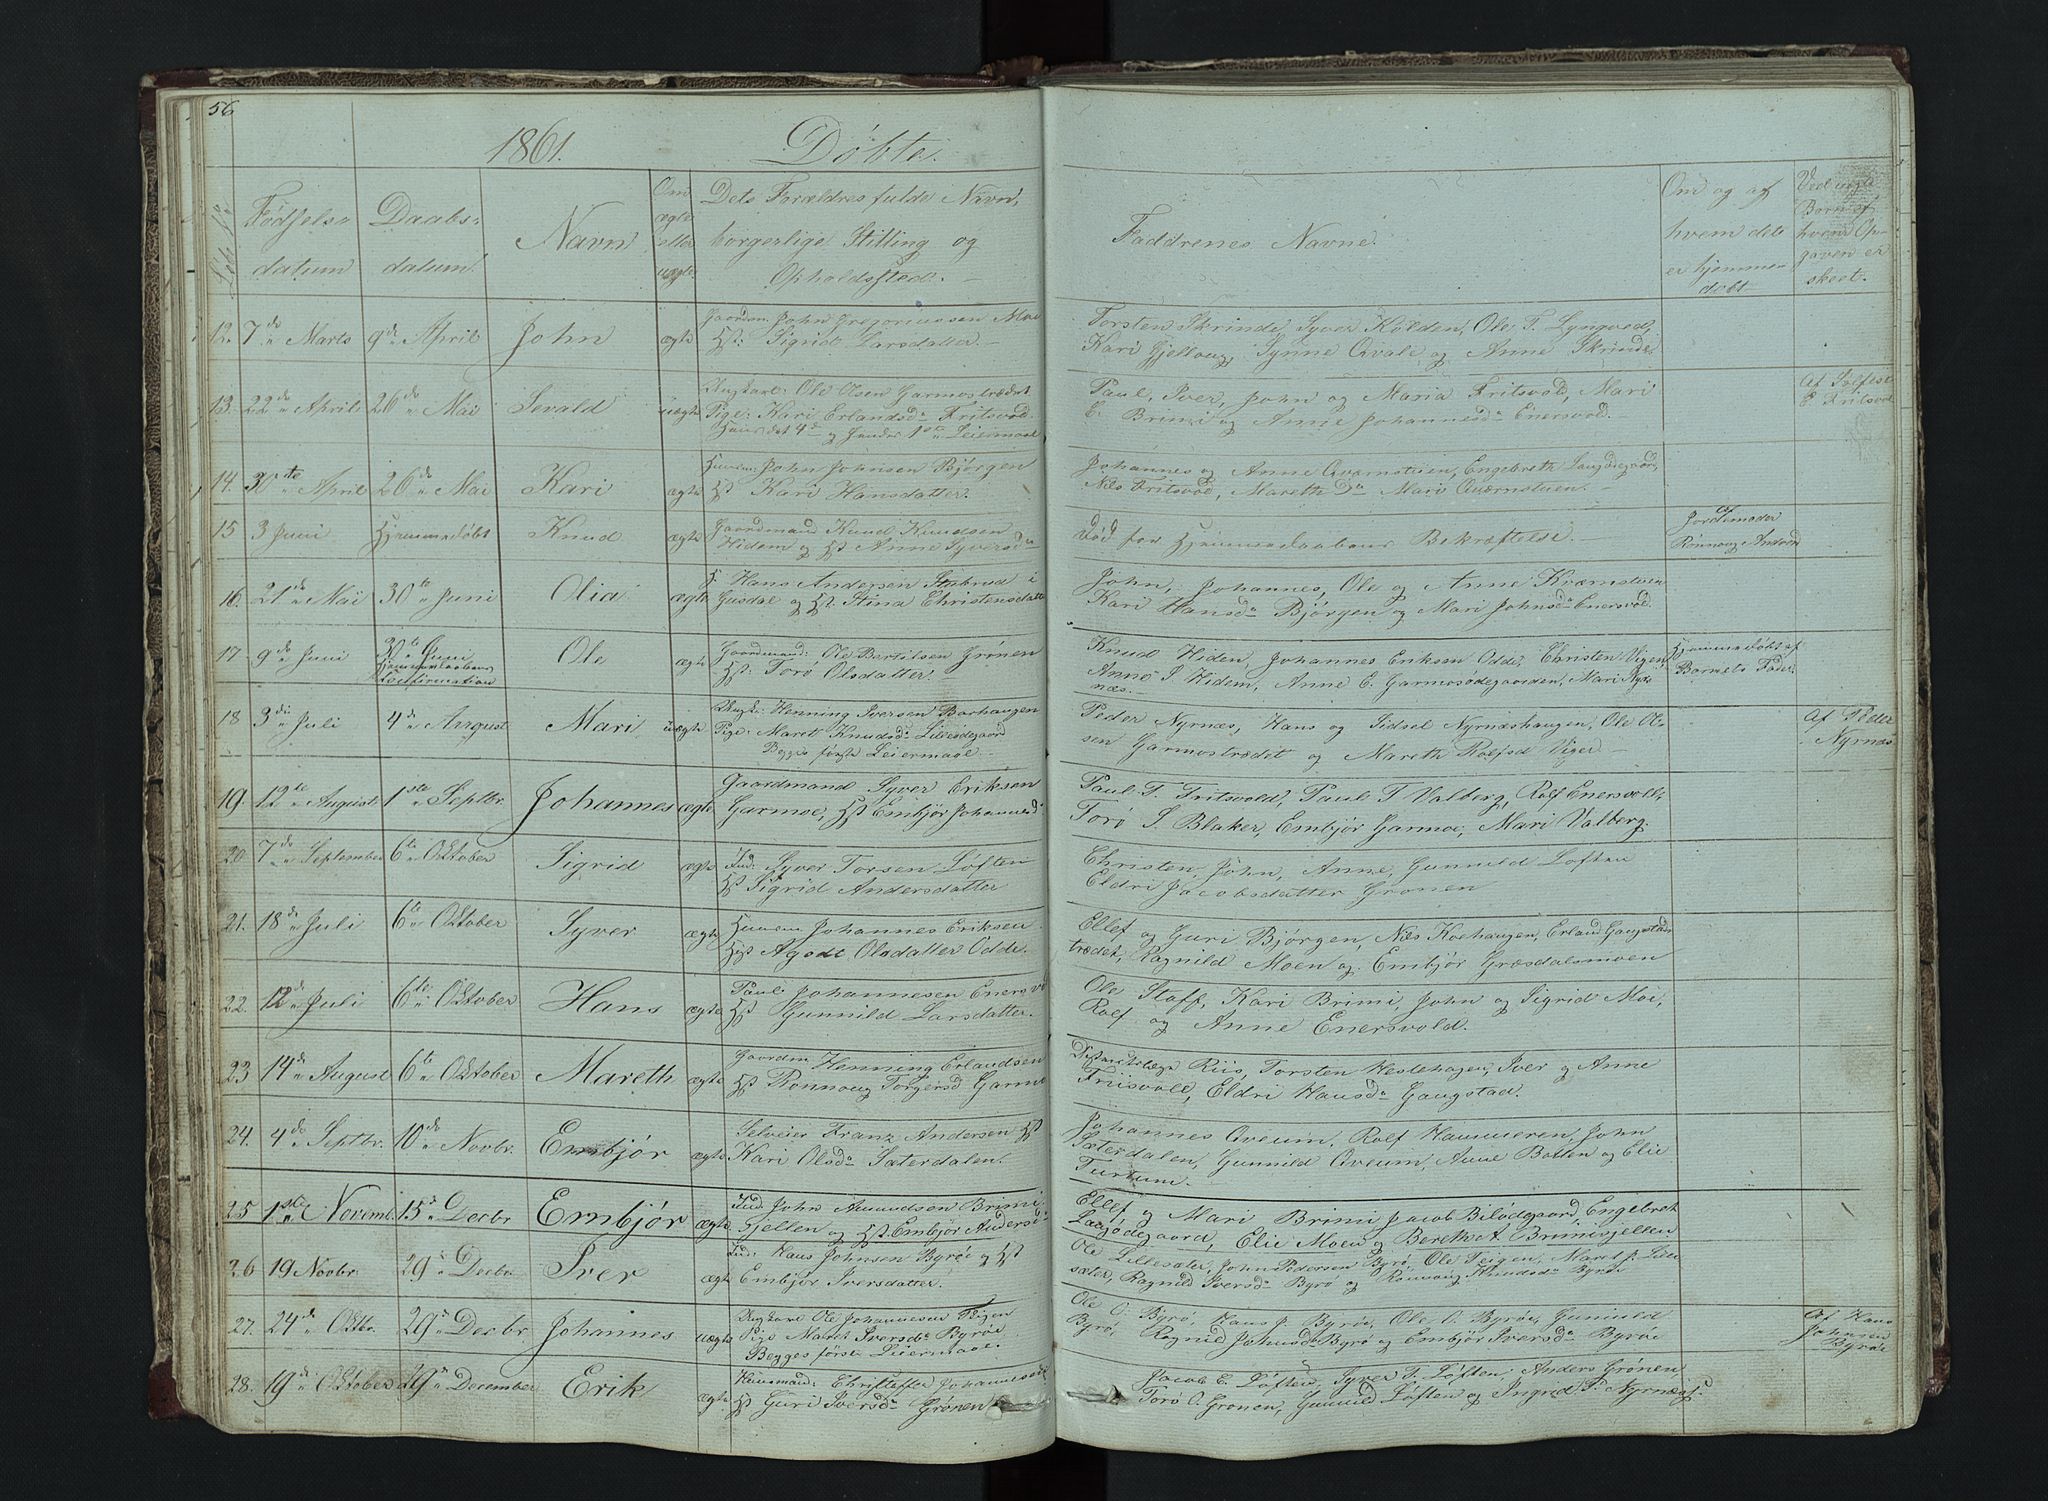 56
1861.
Döbte.
Löbe No
Födsels-
datum
Daabs-
datum
Navn
Om
ægte
eller
uægte
Dets Forældres fulde Navn,
borgerlige Stilling og
Opholdssted.
Faddrenes Navne.
Om og af
hvem det
er hjemme-
döbt
Ved uægte
Börn af
hvem Op-
gaven er
skeet.
12. 7de Marts 9de April John ægte Gaardm: John Gregoriussen Moe
Hst: Sigrid Larsdatter.
Torsten Skrinde, Syver Kolden, Ole T. Lyngved,
Kari Gjeiloug, Synne Qvale og Anne Skrinde.
13. 22de April 26de Mai Sevald uægte Ungkarl: Ole Olsen Garmostrædet
Pige: Kari Erlandsdr Fritsvold.
Hans det 4de og hendes 1ste Leiermaal
Paul, Iver, John og Maria Fritsvold, Mari
E. Brimi og Anne Johannesdr Enersvod.
Af
E. Fritsvol
14. 30te April 26de Mai Kari ægte Huusm: John Johnsen Bjørgen
Hst Kari Hansdatter.
Johannes og Anne Qvarnstuen, Engebreth
Nils Fritsvod, Mareth og Mari Qvarnstuen.
15 3 Juni Hjemmedöbt Knud ægte Gaardmand Knud Knudsen
Hidem og Hst Anne Syversdr
Död før Hjemmedaabens Bekræftelse.
af
Jordemoder
Rönnoug Andvord
16. 21de Mai 30te Juni Olia ægte Hans Andersen i
og Hst. Stina Christensdatter
John, Johannes, Ole og Anne
Kari Hansdr Bjørgen og Mari Johnsdr Enersvod.
17 9de Juni 30te Juni
Hjemmedaabens
Confirmation
Ole ægte Gaardmand: Ole Bertilsen Grönen
Hst: Torö Olsdatter.
Knud Hiden, Johannes Eriksen Odde, Christen Vigen,
Anne S. Hidem, Anne E. Garmosödegaarden, Mari Nyr
næs.
Hjemmedöbt af
Barnets Fader
18 3die Juli 4de August Mari uægte Ungk: Henning Iversen Barhaugen
Pige: Maret Knudsdr
Begges förste Leiermaal
Peder Nyrnæs, Hans og Sidsel Nyrnæshaugen, Ole Ol-
sen Garmostrædet og Mareth Rolfsd Viger
Af Peder
Nyrnæs
19. 12te August 1ste Septbr. Johannes ægte Gaardmand Syver Eriksen
Garmoe, Hst Embjör Johannesd
Paul T. Fritsvold, Paul T Valberg, Rolf Enersvold,
Torö S. Blaker, Embjör Garmoe, Mari Valberg.
20 7de September 6te Oktober Sigrid ægte Ind: Syver Torsen Löften
Hst Sigrid Andersdatter
Christen, John, Anne, Gunnild Löften
Eldri Jacobsdatter Grönen
21. 18de Juli 6te Oktober Syver ægte Huusm Johannes Eriksen
Hst Agodt Olsdatter Odde.
Ellef og Guri Bjørgen, Nils Koehaugen, Erland Gaugstad
trædet, Ragnild Moen og Embjör Græsdalsmoen
22. 12te Juli 6te Oktober Hans ægte Paul Johannesen Enersvo
Hst Gunnild Larsdatter.
Ole Staff, Kari Brimi, John og Sigrid Moe,
Rolf og Anne Enersvold.
23 14de August 6te Oktober Mareth ægte Gaardm Henning Erlandsen
Hst Rönnoug Torgersd Garmo
Distriktslæge Riis, Torsten Hestehagen, Iver og Anne
Frisvold, Eldri Hansdr Gaugstad.
24. 4de Septbr. 10de Novbr. Embjör ægte Selveier Franz Andersen Hst
Kari Olsdr Sæterdalen.
Johannes Qveum, Rolf Hammeren, John
Sæterdalen, Gunnild Qveum, Anne Botten og Elie
Turtum.
25 1ste Novemb. 15de Decbr Embjör ægte Ind: John Amundsen Brimi
Gjellen og Hst. Embjör Andersdr
Ellef og Mari Brimi, Jacob Bilödegaard, Engebret
Elie Moen og Berethe A. Brimigjellen
26 19 Novbr. 29de Decbr Iver ægte Ind: Hans Johnsen Byröe og Hst
Embjör Iversdatter.
Ole Lillesæter, John Pedersen Byrö, Ole Teigen, Maret J. Lille
sæter, Ragnild Iversdr Byrö og Rönnoug Knudsdr Byröe
27. 24de Oktbr. 29de Decbr. Johannes uægte Ungkarl Ole Johannesen Teigen
Pige Maret Iversdr Byröe
Begges förste Leiermaal.
Ole O. Byrö, Hans J. Byröe, Ole O. Byröe, Gunnild
Byrö, Ragnild Johnsdr Byrö og Embjör Iversdr Byröe
Af Hans
Johnsen
Byröe
28. 19de Oktober 29de December Erik ægte Huusmand: Christoffer Johannesen
Hst Guri Iversdr Grönen
Jacob E. Löften, Syver T. Löften, Anders Grönen,
Torö O. Grönen, Gunnild Löften og Ingrid P. Nyrnæs.